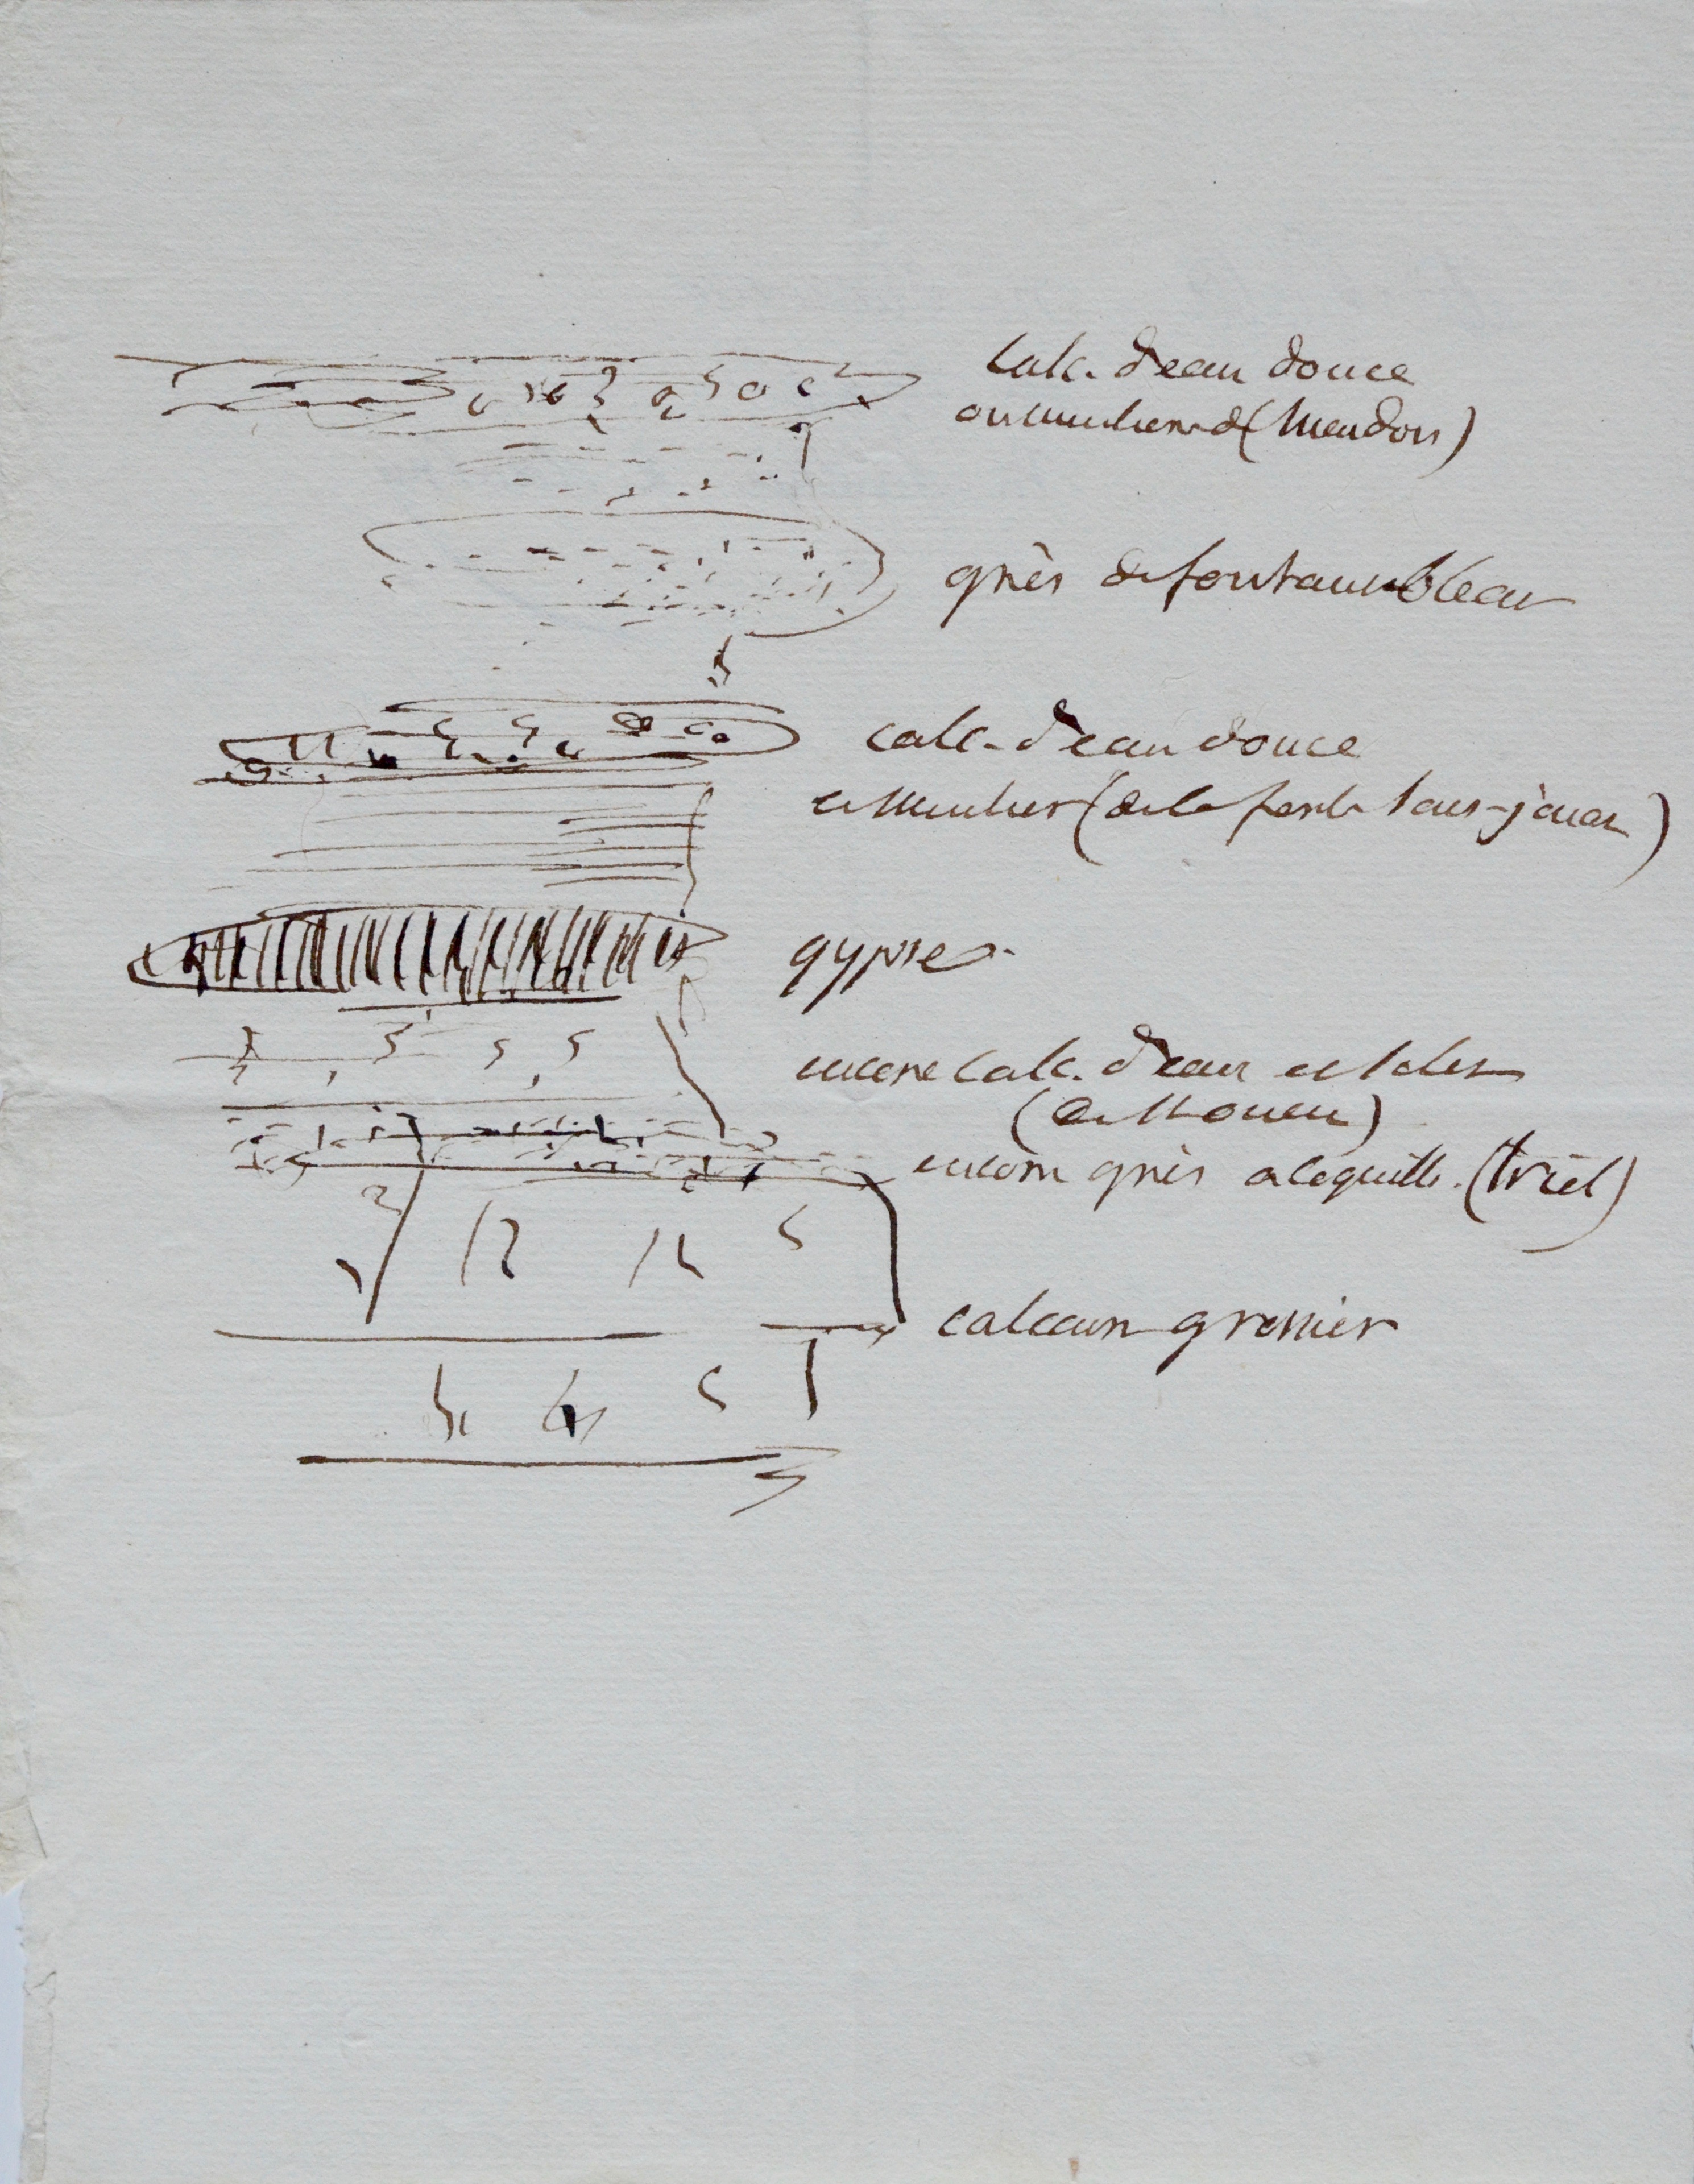 Calc. d'eau douce
ou meuliere d (Meudon)
grès de fontainebleau
calc. d'eau douce
et meulier (de la ferté sous-jouar)
gypse
encore calc. d'eau et
(de St Ouen)
encore grès a coquille. (triel)
calcaire grossier